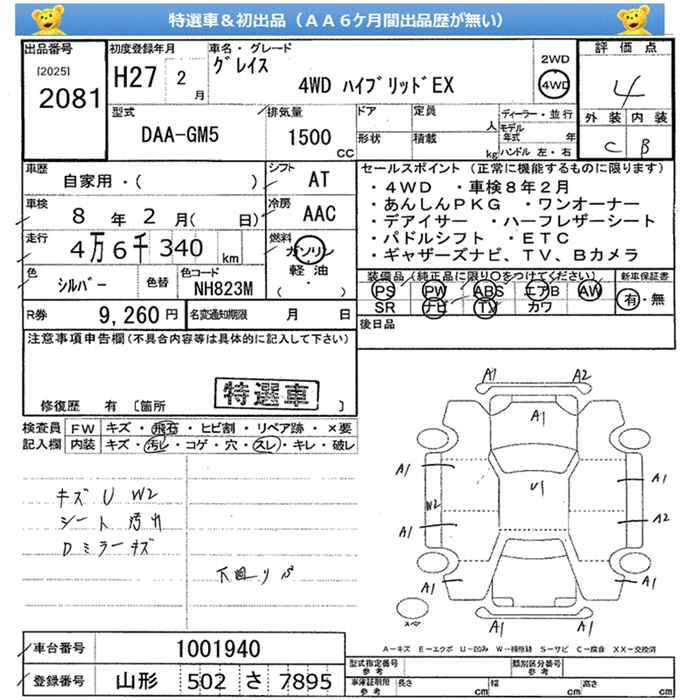 特選車＆初出品（ＡＡ６ケ月間出品歴が無い）
出品番号
[2025]
2081
初度登録年月
H27 2月
車名・グレード
グレイス
4WD ハイブリッドEX
2WD
4WD
評価点
4
外装 内装
C B
型式
DAA-GM5
排気量
1500 CC
ドア
定員 人
形状
積載 kg
ディーラー・並行
モデル年式 年
ハンドル 左・右
車歴
自家用・( )
シフト
AT
車検
8年2月( 日)
冷房
AAC
走行
4万6千340 km
燃料
ガソリン
軽・油
( )
色
シルバー
色替
色コード
NH823M
R券
9,260円
名変通知期限
月 日
セールスポイント（正常に機能するものに限ります）
・４ＷＤ ・車検８年２月
・あんしんＰＫＧ ・ワンオーナー
・デアイサー ・ハーフレザーシート
・パドルシフト ・ＥＴＣ
・ギャザーズナビ、ＴＶ、Ｂカメラ
装備品（純正品に限り○をつけてください）
新車保証書
PS PW ABS エアB AW
SR ナビ TV カワ
有・無
後日品
注意事項申告欄（不具合内容等は具体的に記入して下さい）
特選車
修復歴 有〔箇所 〕
検査員記入欄
FW キズ・飛石・ヒビ割・リペア跡・×要
内装 キズ・汚レ・コゲ・穴・スレ・キレ・破レ
キズ U W2
シート 汚れ
Dミラーキズ
下廻りS
A1 A2
A1
A1 A1
U1
W2
A1 A2
A1 A1
A1 A1
スペア
A－キズ E－エクボ U－凹み W－補修跡 S－サビ C－腐食 XX－交換済
車台番号
1001940
登録番号
山形 502 さ 7895
型式指定番号
参考
類別区分番号
車庫証明用
参考
長さ cm
幅 cm
高さ cm